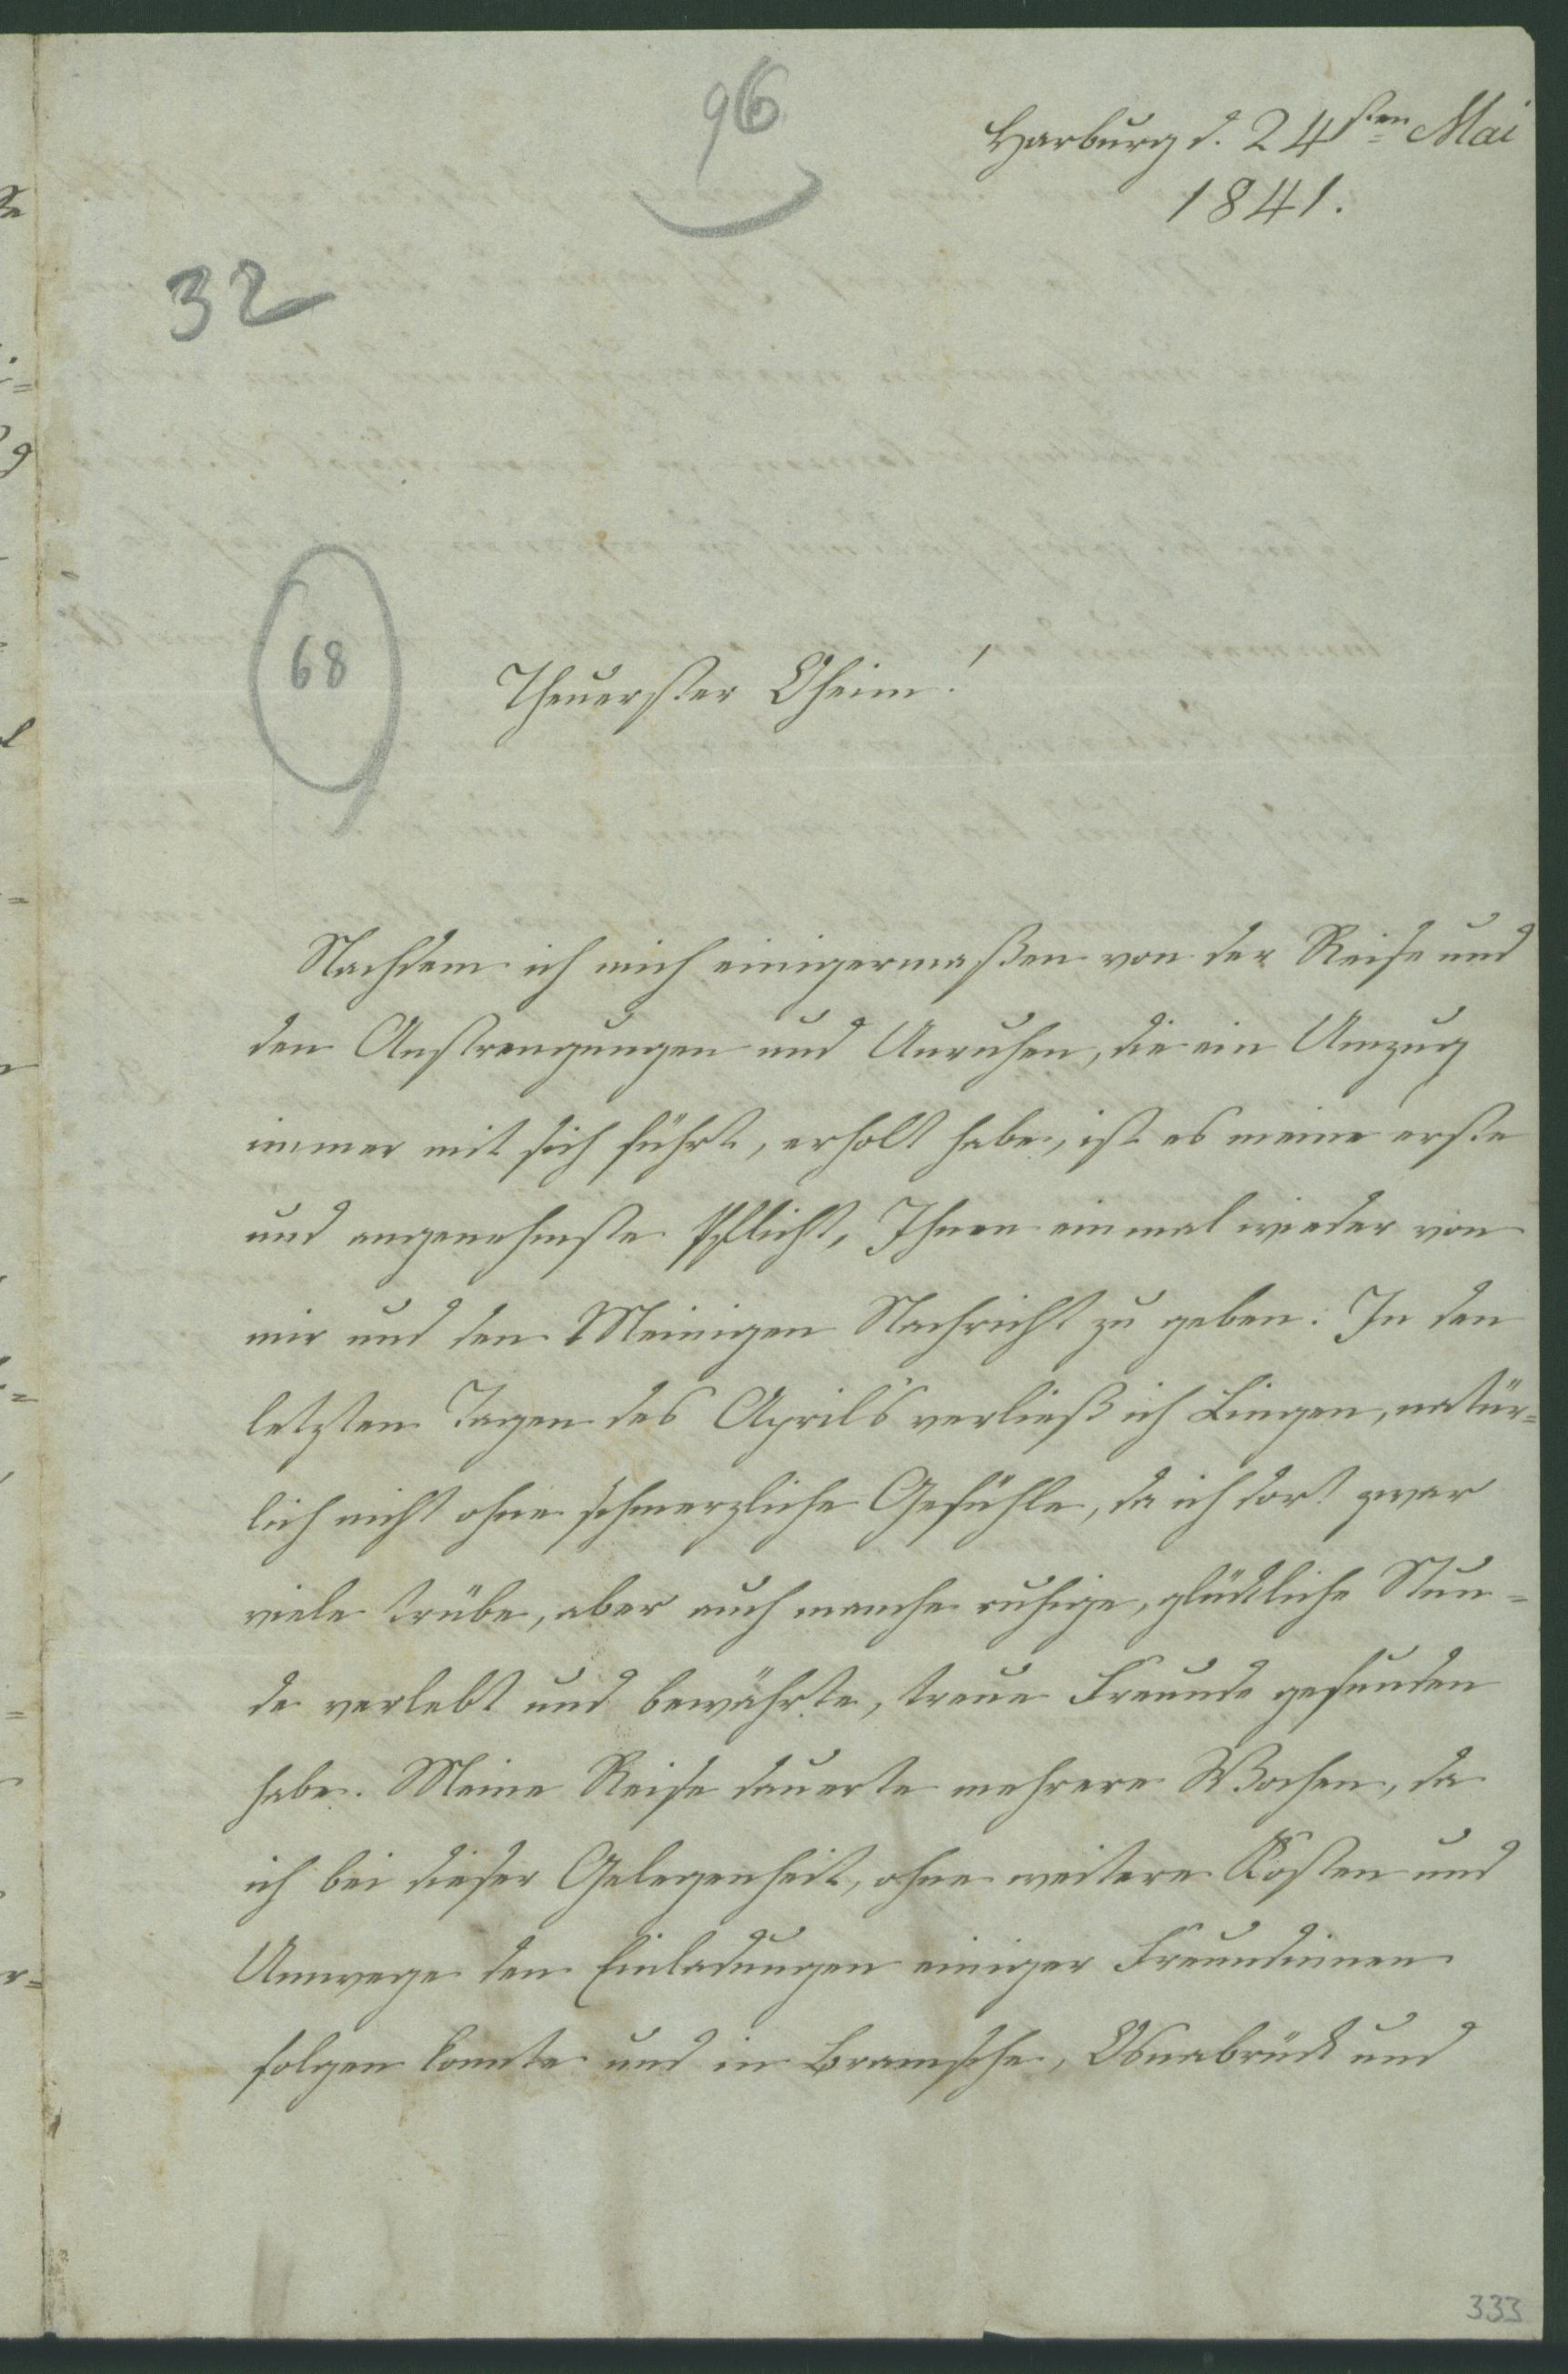 96
Harburg d. 24sten Mai
1841.
32
68
Theuerster Oheim!
Nachdem ich mich einigermaßen von der Reise und
den Anstrengungen und Unruhen, die ein Umzug
immer mit sich führt, erholt habe, ist es meine erste
und angenehmste Pflicht, Ihnen einmal wieder von
mir und den Meinigen Nachricht zu geben. In den
letzten Tagen des April's verließ ich Lingen, natür=
lich nicht ohne schmerzliche Gefühle, da ich dort zwar
viele trübe, aber auch manche ruhige, glückliche Stun=
de verlebt und bewährte, treue Freunde gefunden
habe. Meine Reise dauerte mehrere Wochen, da
ich bei dieser Gelegenheit, ohne weitere Kosten und
Umwege den Einladungen einiger Freundinnen
folgen konnte und in Bramsche, Osnabrück und
333